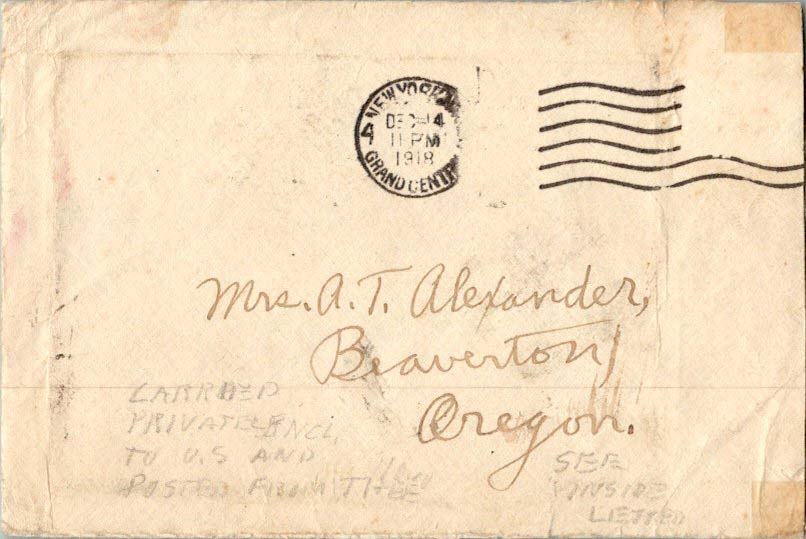 NEW YORK, N.
DEC-14
11 PM
1918
GRAND CENTR
Mrs. A. T. Alexander,
Beaverton,
Oregon.
CARRIED
PRIVATELY ENCL
TO U.S AND
POSTED FROM
SEE
INSIDE
LETTER